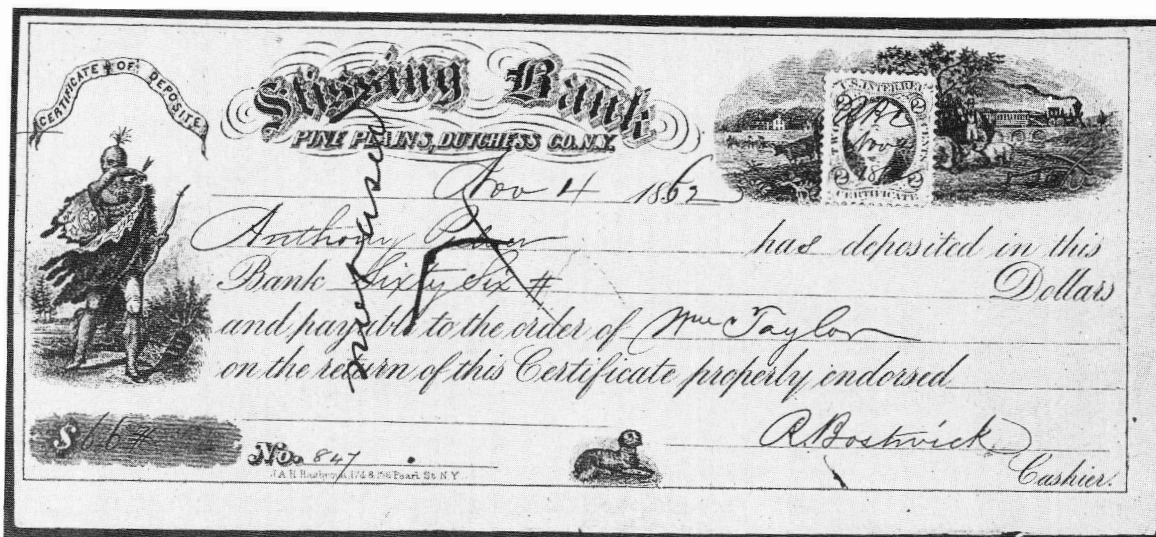 CERTIFICATE OF DEPOSITE
Stissing Bank
PINE PLAINS, DUTCHESS CO. N.Y.
U.S. INTER. REV.
2 2
TWO CENTS
Nov 4
18
2 2
CERTIFICATE
Nov 4 1862
Anthony has deposited in this
Bank Sixty Six # Dollars
and payable to the order of Wm Taylor
on the return of this Certificate properly endorsed
$ 66 #
No. 847
R. Bostwick
Cashier.
J.A.H. Hasbrouck 174 & 176 Pearl St. N.Y.